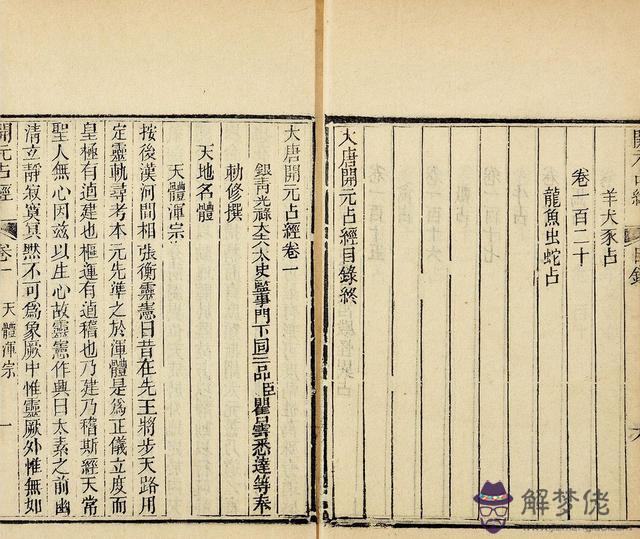 羊犬豕占
卷一百二十
龍魚虫蛇占
大唐開元占經目錄終
大唐開元占經卷一
銀青光祿大夫太史監事門下同三品臣瞿曇悉達等奉
勅修撰
天地名體
天體渾宗
按後漢河間相張衡靈憲曰昔在先王將步天路用
定靈軌尋考本元先準之於渾體是為正儀立度而
皇極有逌建也樞運有逌稽也乃建乃稽斯經天常
聖人無心因茲以生心故靈憲作興曰太素之前幽
清立靜寂寞冥黙不可爲象厥中惟靈厥外惟無如
開元占經
卷一
天體渾宗
一
解梦佬